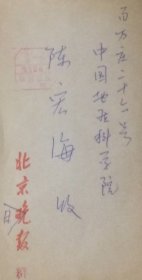 百万庄二十六号
中国地质科学院
陈宏海收
北京晚报